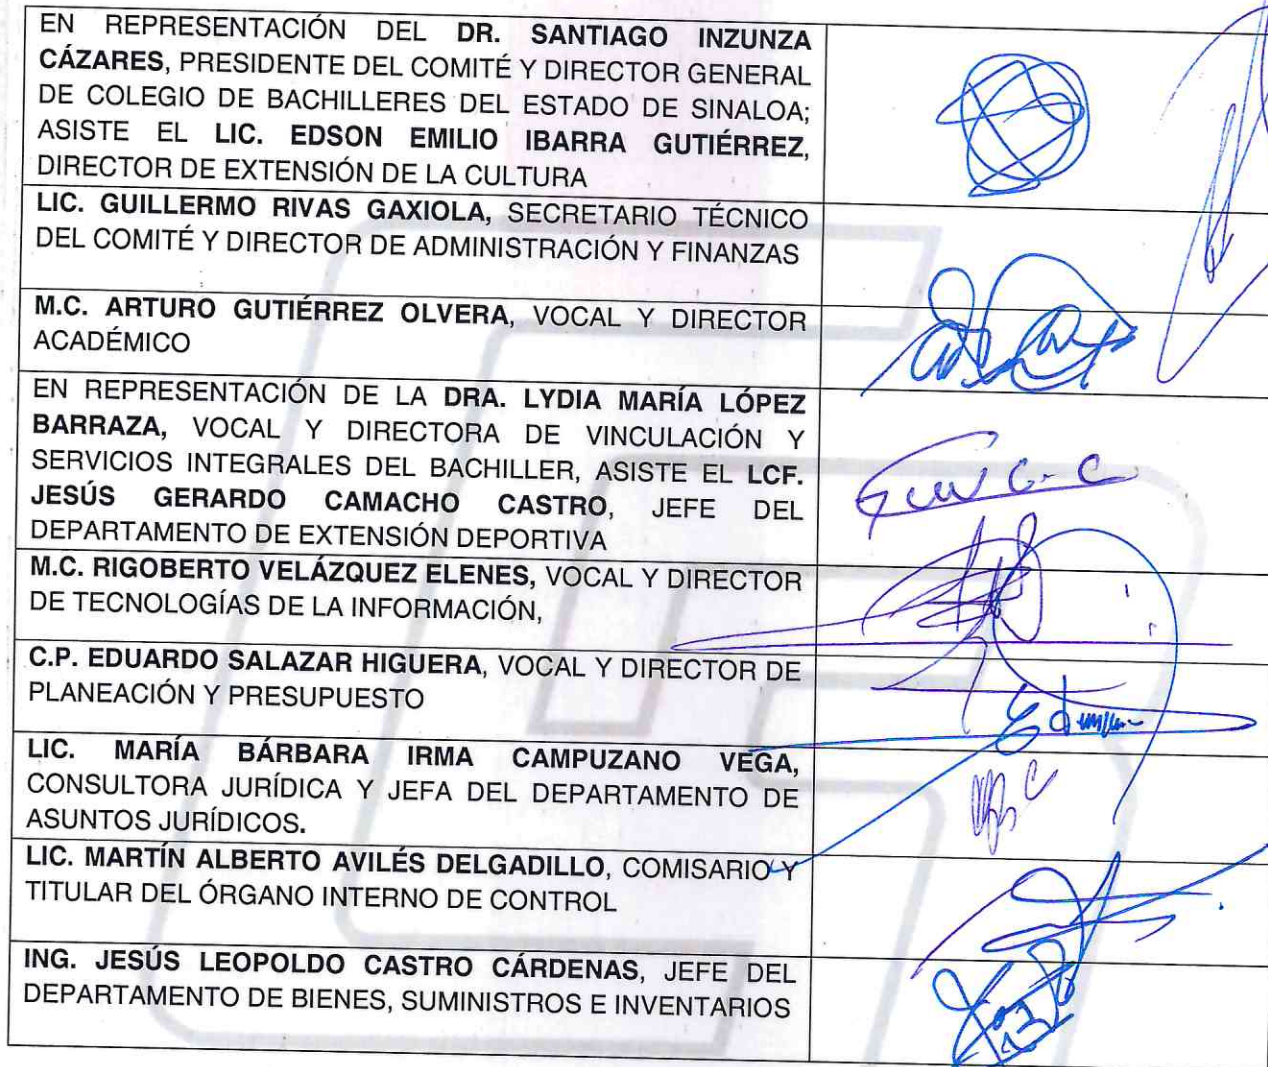 EN REPRESENTACIÓN DEL DR. SANTIAGO INZUNZA
CÁZARES, PRESIDENTE DEL COMITÉ Y DIRECTOR GENERAL
DE COLEGIO DE BACHILLERES DEL ESTADO DE SINALOA;
ASISTE EL LIC. EDSON EMILIO IBARRA GUTIÉRREZ,
DIRECTOR DE EXTENSIÓN DE LA CULTURA
LIC. GUILLERMO RIVAS GAXIOLA, SECRETARIO TÉCNICO
DEL COMITÉ Y DIRECTOR DE ADMINISTRACIÓN Y FINANZAS
M.C. ARTURO GUTIÉRREZ OLVERA, VOCAL Y DIRECTOR
ACADÉMICO
EN REPRESENTACIÓN DE LA DRA. LYDIA MARÍA LÓPEZ
BARRAZA, VOCAL Y DIRECTORA DE VINCULACIÓN Y
SERVICIOS INTEGRALES DEL BACHILLER, ASISTE EL LCF.
JESÚS GERARDO CAMACHO CASTRO, JEFE DEL
DEPARTAMENTO DE EXTENSIÓN DEPORTIVA
M.C. RIGOBERTO VELÁZQUEZ ELENES, VOCAL Y DIRECTOR
DE TECNOLOGÍAS DE LA INFORMACIÓN,
C.P. EDUARDO SALAZAR HIGUERA, VOCAL Y DIRECTOR DE
PLANEACIÓN Y PRESUPUESTO
LIC. MARÍA BÁRBARA IRMA CAMPUZANO VEGA,
CONSULTORA JURÍDICA Y JEFA DEL DEPARTAMENTO DE
ASUNTOS JURÍDICOS.
LIC. MARTÍN ALBERTO AVILÉS DELGADILLO, COMISARIO Y
TITULAR DEL ÓRGANO INTERNO DE CONTROL
ING. JESÚS LEOPOLDO CASTRO CÁRDENAS, JEFE DEL
DEPARTAMENTO DE BIENES, SUMINISTROS E INVENTARIOS